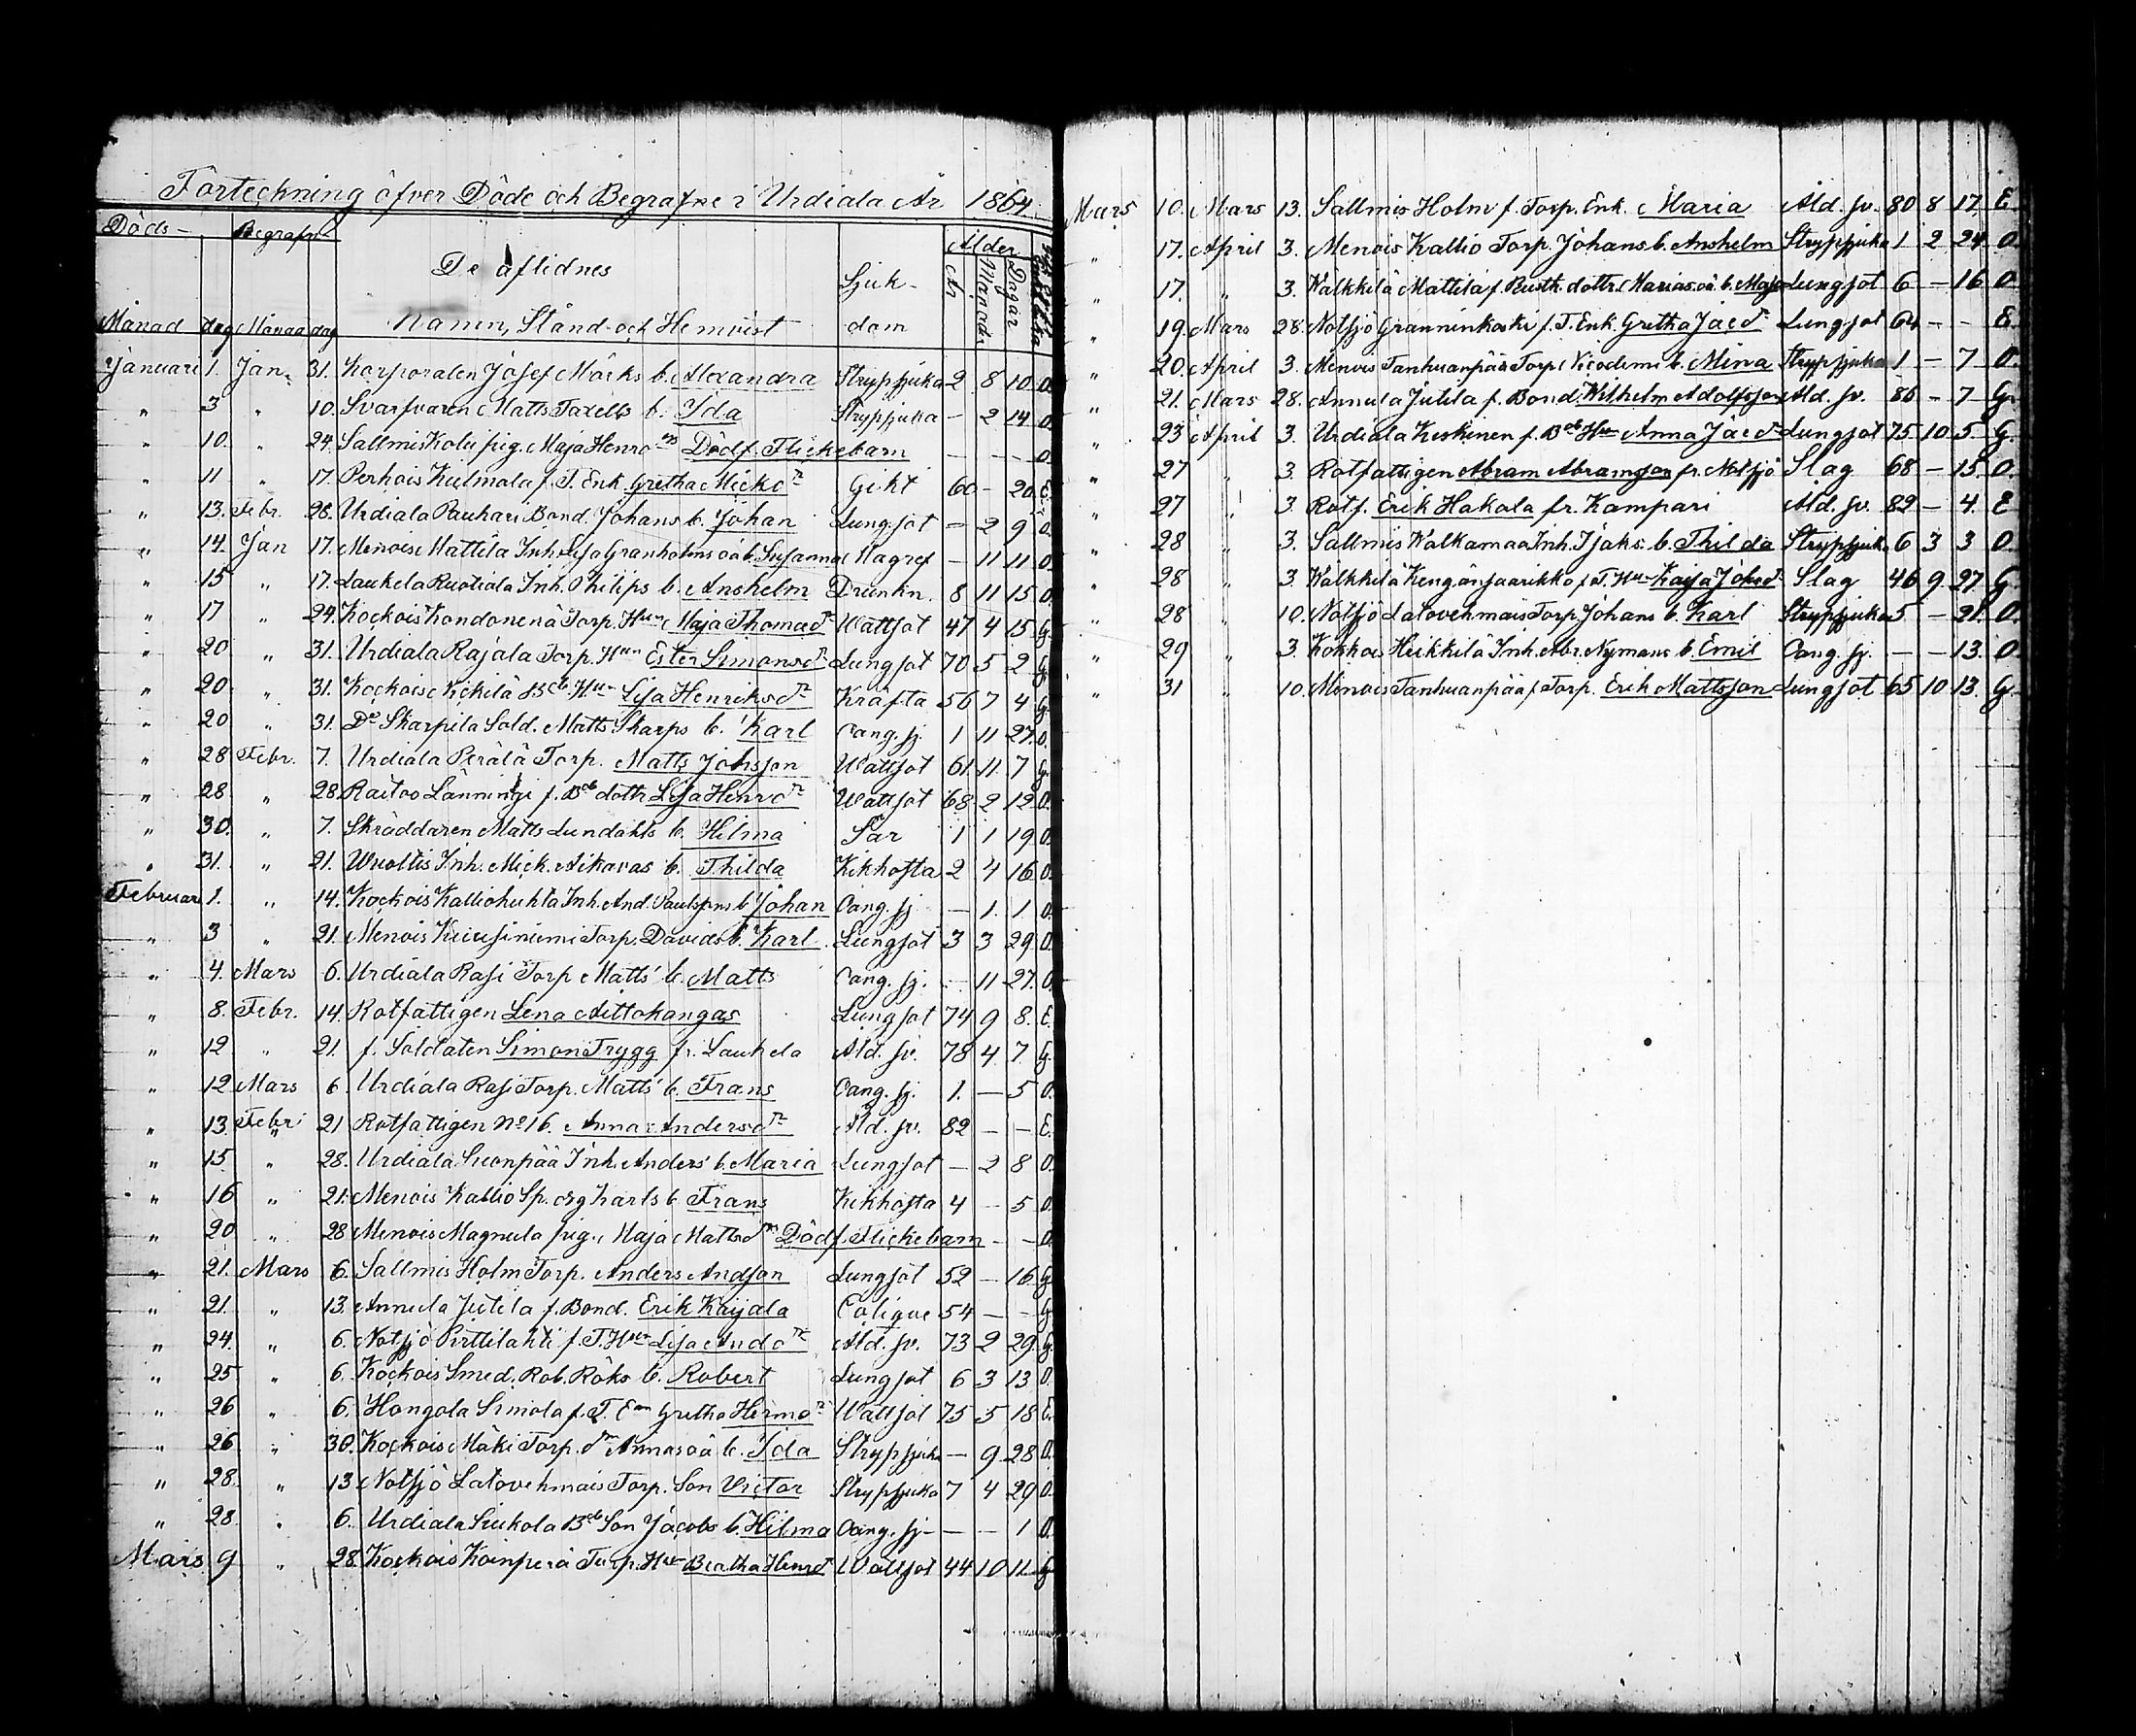 Förteckning öfver Döde och Begrafne i Urdiala År 1864.
Döds- Begrafn- Ålder
De aflidnes Sjuk-
Månad dag Månad dag Namn, Stånd och Hemvist dom År Månad Dagar
Januari 1. Jan. 31. Korporalen Josef Mörks b. Alexandra Strypsjuka 2 8 10. O.
" 3 " 10. Svarfvaren Matts Taxells b. Ida Strypsjuka — 2 14 O.
" 10. " 24. Sallmis Kolu pig. Maja Henrds Dödf. Flickebarn — — — O.
" 11 " 17. Perhois Kulmala f. T. Enk. Gretha Mickdr Gikt 60 — 20. E.
" 13. Febr. 28. Urdiala Pauhari Bond. Johans b. Johan Lungsot — 2 9 O.
" 14. Jan 17. Menois Mattila Inh. Lisa Granholms oä b. Susanna Magref — 11 11 O.
" 15 " 17. Laukela Ruotiala Inh. Philips b. Anshelm Drunkn. 8 11 15 O.
" 17 " 24. Kockois Kondonenä Torp. Hun Maja Thomasdr Wattsot 47 4 15 G.
" 20 " 31. Urdiala Rajala Torp. Hun Ester Simonsdr Lungsot 70 5 2 G.
" 20 " 31. Kockois Kickilä Bdb. Hun Lisa Henriksdr Kräfta 56 7 4 G.
" 20 " 31. Do Skarpila Sold. Matts Skarps b. Karl Oang. sj. 1 11 27. O.
" 28 Febr. 7. Urdiala Perälä Torp. Matts Johsson Wattsot 61. 11. 7 G.
" 28. " 28. Raitoo Länningi f. Bdb dottr Lisa Henrdr Wattsot 68 2 12 O.
" 30. " 7. Skräddaren Matts Lundahls b. Hilma Sår 1 1 19 O.
" 31. " 21. Wuoltis Inh. Mick. Aikavas b. Thilda Kikhosta 2 4 16 O.
Februari 1. " 14. Kockois Kalliohuhta Inh. And. Paulssons b. Johan Oang. sj — 1. 1 O.
" 3 " 21. Menois Kuusiniemi Torp. Davids b. Karl Lungsot 3 3 29 O.
" 4. Mars 6. Urdiala Rasi Torp Matts' b. Matts Oang. sj. — 11 27. O.
" 8. Febr. 14. Rotfattigen Lena Aittokangas Lungsot 74 9 8. E.
" 12 " 21. f. Soldaten Simon Trygg fr. Laukela Åld. sv. 78 4 7. G.
" 12 Mars 6. Urdiala Rasi Torp. Matts' b. Frans Oang. sj. 1. — 5 O.
" 13. Febr. 21 Rotfattigen No 16. Anna Andersdr Åld. sv. 82 — — E.
" 15. " 28. Urdiala Suonpää Inh. Anders' b. Maria Lungsot — 2 8 O.
" 16 " 21. Menois Kallio Sp. arg Karls b. Frans Kikhosta 4 — 5 O.
" 20 " 28 Menois Magnula pig. Maja Mattsdrs Dödf. Flickebarn — — O.
" 21. Mars 6. Sallmis Holm Torp. Anders Andsson Lungsot 52 — 16 G.
" 21. " 13. Annula Jutila f. Bond. Erik Kaijala Colique 54 — — G.
" 24. " 6. Notsjö Pirttilahti f. T. Hun Lisa Anddr Åld. sv. 73 2 29 G.
" 25 " 6. Kockois Smed. Rob. Röks b. Robert Lungsot 6 3 13 O.
" 26 " 6. Hongola Simola f. T. En Gretha Hermdr Wattsot 75 5 18 E.
" 26. " 30. Kockois Mäki Torp. dr Annas oä b. Ida Strypsjuka — 9 28 O.
" 28. " 13 Notsjö Latovehmais Torp. Son Victor Strypsjuka 7 4 29 O.
" 28. " 6. Urdiala Siukola Bdb Son Jacobs b. Hilma Oang. sj — — 1 O.
Mars 9 " 28. Kockois Koinperä Torp. Hu Beatha Henrdr Wattsot 44 10 11. G.
Mars 10. Mars 13. Sallmis Holm f. Torp. Enk. Maria Åld. sv. 80 8 17. E.
" 17. April 3. Menois Kallio Torp. Johans b. Anshelm Strypsjuka 1 2 24 O.
" 17. " 3. Kälkkilä Mattila f. Rusth. dottr. Marias oä b. Maja Lungsot 6 — 16 O.
" 19. Mars 28. Notsjö Granninkoski f. T. Enk. Gretha Jacdr Lungsot 64 — — E.
" 20. April 3. Menois Tanhuanpää Torp. Nicodemi b. Mina Strypsjuka 1 — 7 O.
" 21. Mars 28. Annula Jutila f. Bond. Wilhelm Adolfsson Åld. sv. 86 — 7 G.
" 23 April 3. Urdiala Keskinen f. Bdb Hu Anna Jacdr Lungsot 75. 10. 5. G.
" 27 " 3. Rotfattigen Abram Abramsson fr. Notsjö Slag 68 — 15. O.
" 27 " 3. Rotf. Erik Hakala fr. Kampari Åld. sv. 82 — 4. E
" 28 " 3. Sallmis Walkamaa Inh. Isaks b. Thilda Strypsjuk. 6 3 3 O.
" 28 " 3. Kälkkilä Kengänsaarikko f. T. Hu Kaisa Johsdr Slag 46 9 27. G.
" 28 10. Notsjö Latovehmais Torp. Johans b. Karl Strypsjuka 5 — 21. O.
" 29 " 3. Kokkois Heikkilä Inh. Abr. Nymans b. Emil Oang. sj. — — 13. O.
" 31 " 10. Menois Tanhuanpää f. Torp. Erik Mattsson Lungsot 65 10 13. G.